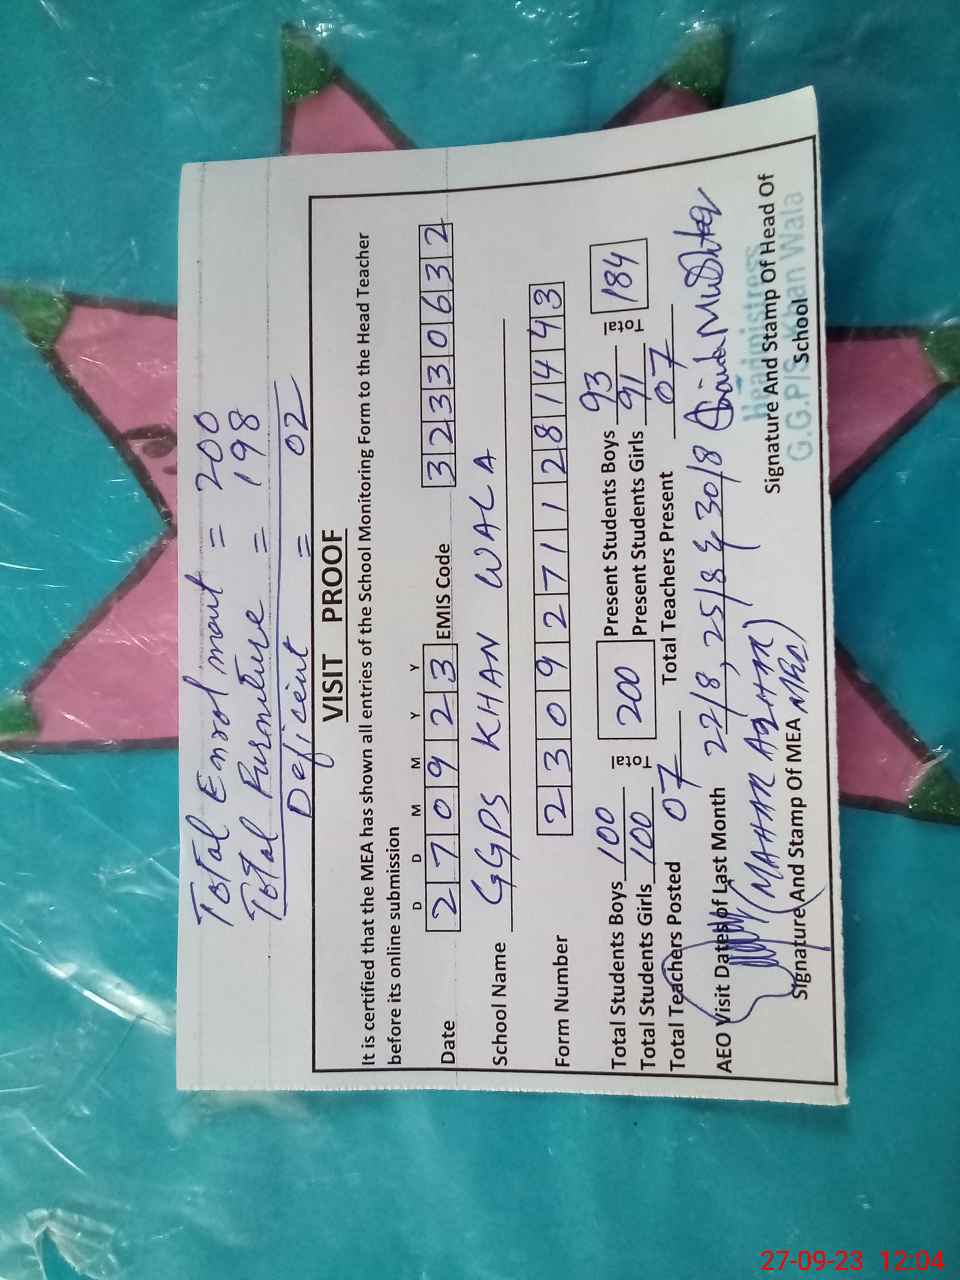 Total Enrolment = 200
Total Furniture = 198
Deficient = 02
VISIT PROOF
It is certified that the MEA has shown all entries of the School Monitoring Form to the Head Teacher
before its online submission
D D M M Y Y
Date 270923 EMIS Code 32330632
School Name GGPS KHAN WALA
Form Number 2309271128 1443
Total Students Boys 100 Total 200 Present Students Boys 93 Total 184
Total Students Girls 100 Present Students Girls 91
Total Teachers Posted 07 Total Teachers Present 07
AEO Visit Dates of Last Month 22/8, 25/8 & 30/8
(MAHAR AZHAR)
Signature And Stamp Of MEA MEA
Headmistress
Signature And Stamp Of Head Of
G.G.P/S Khan Wala
School
27-09-23 12:04